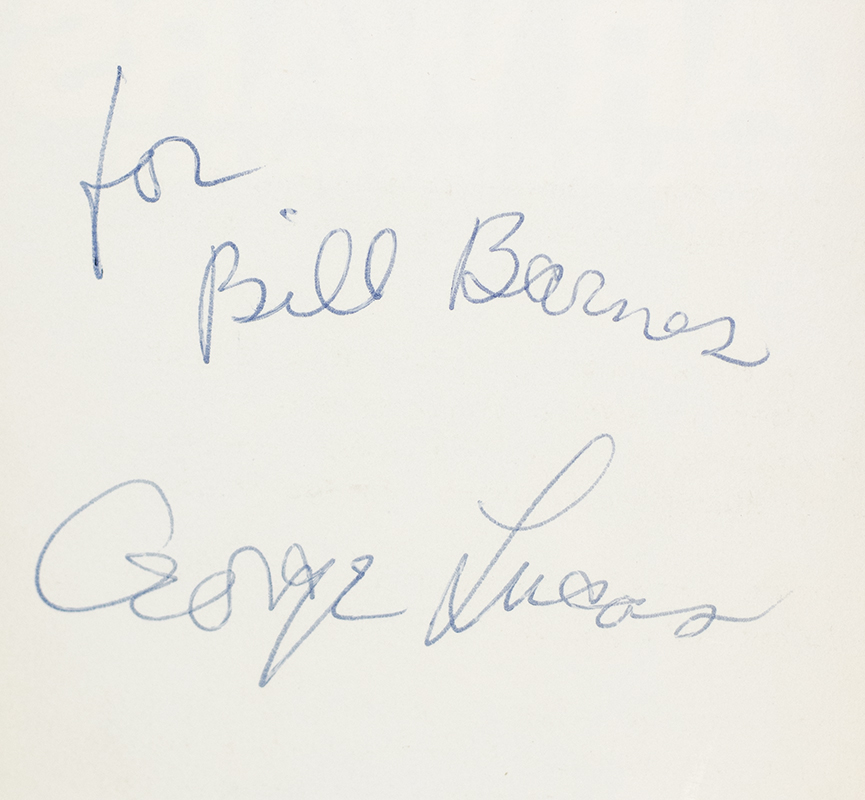 for
Bill Barnes
George Lucas